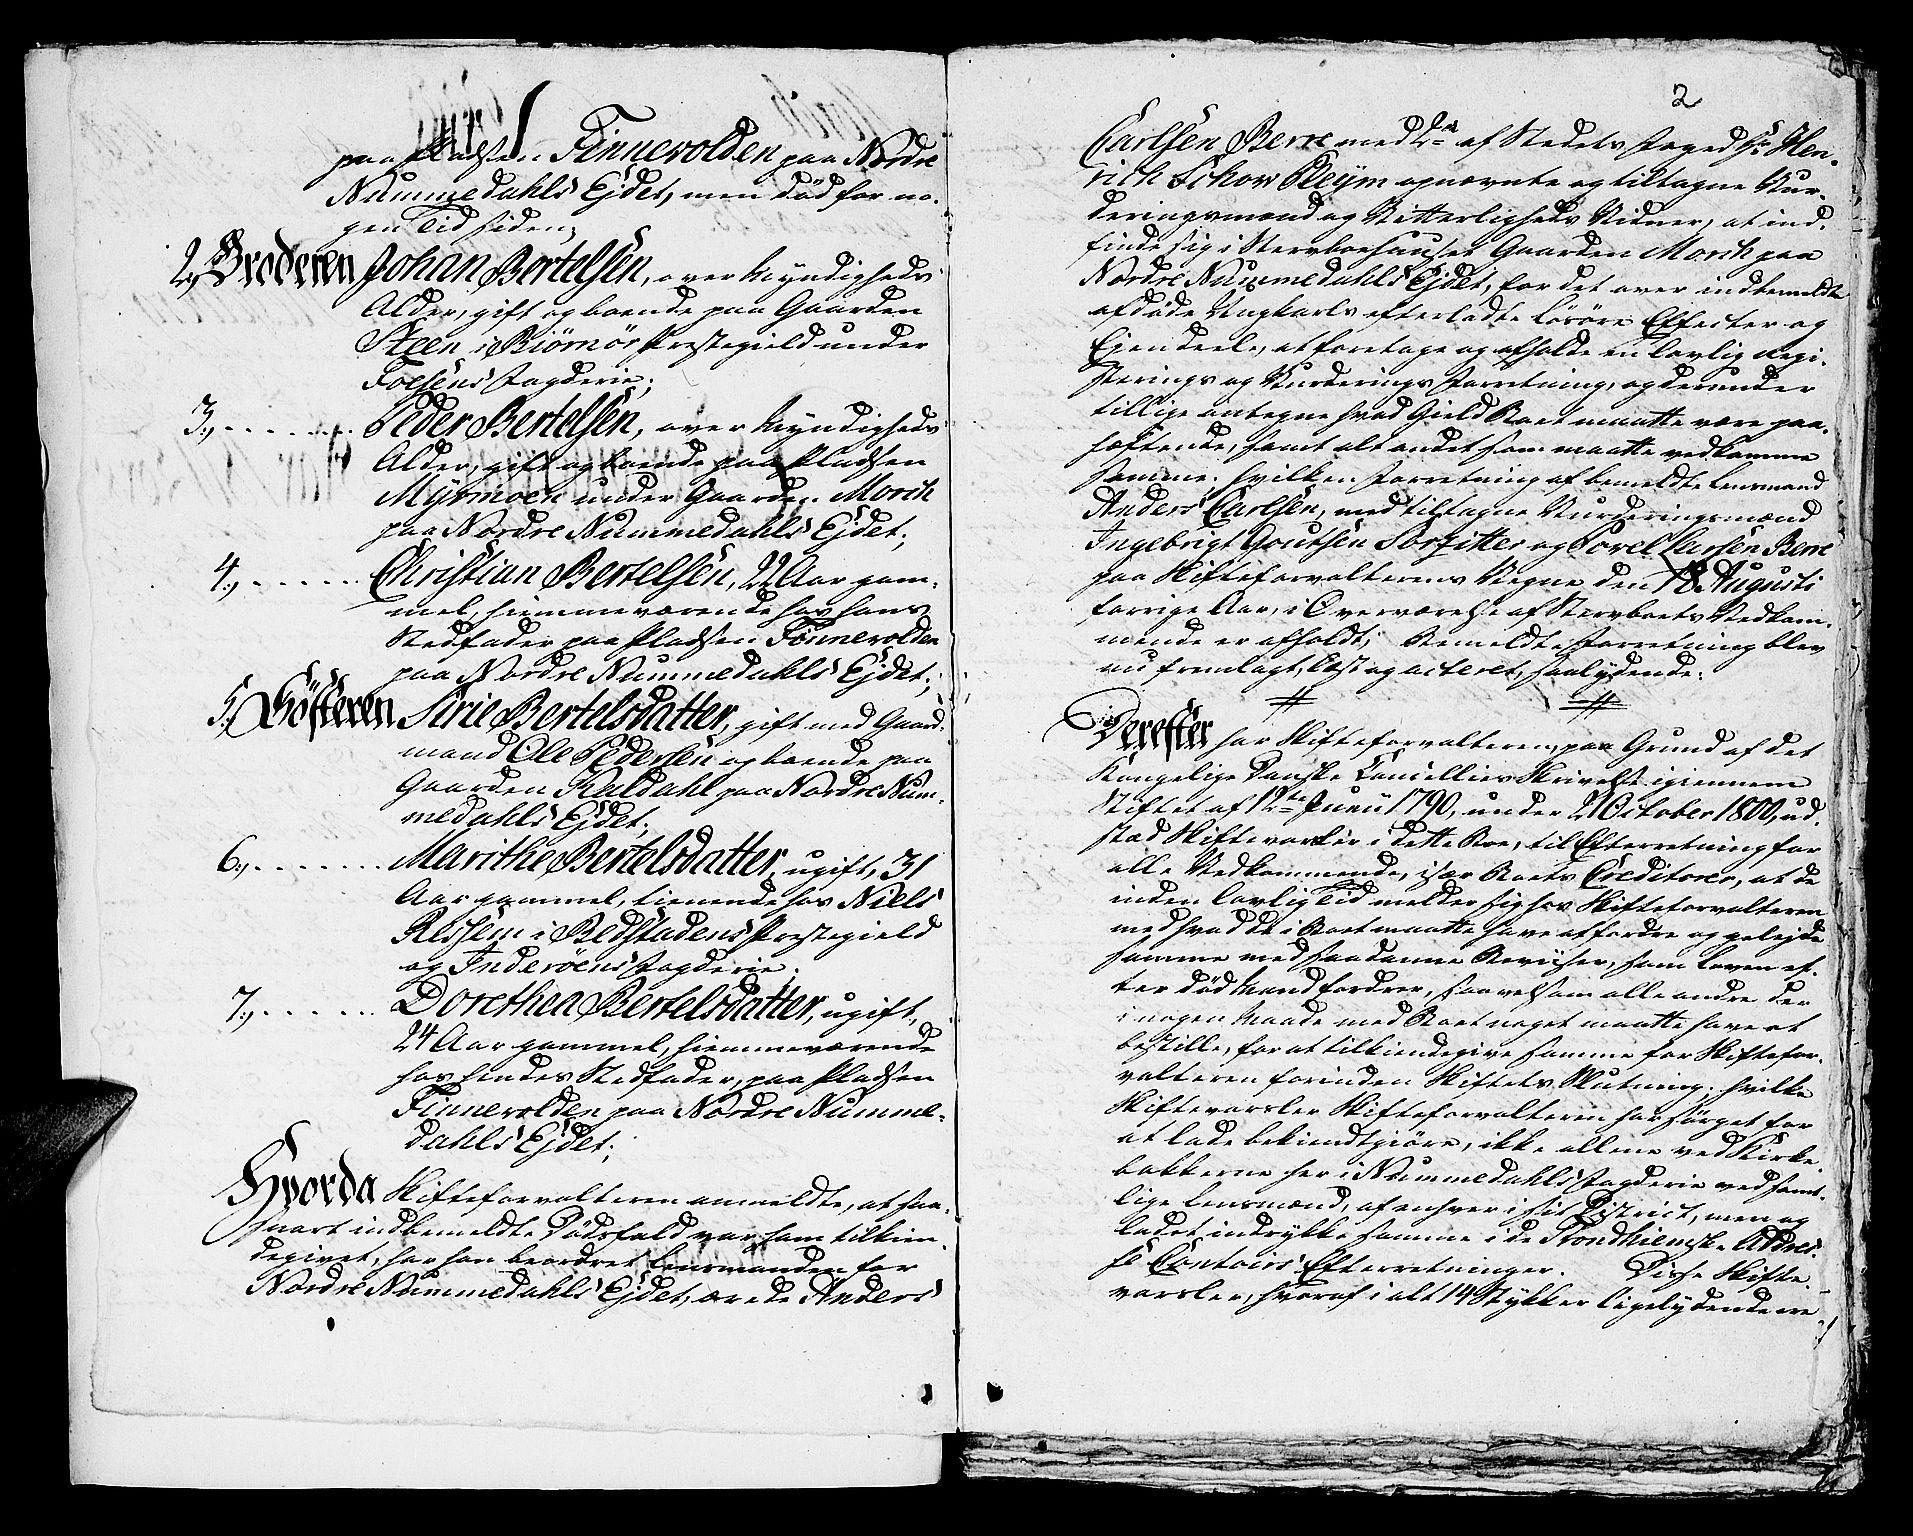 paa Pladsen Finnevolden paa Nordre
Nummedahls Ejdet, men død for no-
gen Tid siden;
2, Broderen Johan Bertelsen, over Myndigheds
Alder, gift og boende paa Gaarden
Steen i Biørnørs Præstegield under
Foesens Fogderie;
3., ........ Peder Bertelsen, over Myndigheds
Alder, gift og boende paa Pladsen
Myrmoen under Gaarden Morch
paa Nordre Nummedahls Ejdet;
4., ...... Christian Bertelsen, 22 Aar gam-
mel, hiemmeværende hos hans
Stedfader paa Pladsen Finnevolden
paa Nordre Nummedahls Ejdet;
5., Søsteren Sirie Bertelsdatter, gift med Gaard-
mand Ole Pedersen og boende paa
Gaarden Kaldahl paa Nordre Num-
medahls Ejdet;
6., ....... Marithe Bertelsdatter, ugift, 31
Aar gammel, tienende hos Niels
Ressem i Bedstadens Præstegield
og Inderøens Fogderie;
7., ...... Dorethea Bertelsdatter, ugift,
24 Aar gammel, hiemmeværende
hos hendes Stedfader, paa Pladsen
Finnevolden paa Nordre Numme-
dahls Ejdet;
Hvorda Skifteforvalteren anmeldte, at saa-
snart indbemeldte Dødsfald var ham tilkien-
degivet, har han beordret Lensmanden for
Nordre Nummedahls Ejdet, ærede Anders
2
Carlsen Berre med 2de af Stedets Foged Hr. Hen-
rich Schow Pleym opnævnte og tiltagne Vur-
deringsmænd og Vitterligheds Vidner, at ind-
finde sig i Stervboehuuset Gaarden Morch paa
Nordre Nummedahls Ejdet, for det over indbemeldte
afdøde Ungkarls efterladte Løsøre Effecter og
Ejendeele, at foretage og afholde en lovlig Regi-
strerings og Vurderings Forretning, og derunder
tillige antegne hvad Gield Boet maatte være paa-
hæftende, samt alt andet som maatte vedkomme
samme; hvilken Forretning af bemeldte Lensmand
Anders Carlsen, med tiltagne Vurderingsmænd
Ingebrigt Joutsen og Povel Larsen Berre
paa Skifteforvalterens Vegne den 18 Augusti
forrige Aar, i Overværelse af Stervboets Vedkom-
mende er afholdt; Bemeldte Forretning blev
nu fremlagt, læst og acteret, saalydende:
Derefter har Skifteforvalteren, paa Grund af det
Kongelige Danske Cancellies Skrivelse igiennem
Stiftet af 12te Junii 1790, under 2 October 1800, ud-
stæd Skiftevarsler i dette Boe, til Efterretning for
alle Vedkommende, især Boets Creditorer, at de
inden lovlig Tid melder sig hos Skifteforvalteren
med hvad de i Boet maatte have at fordre og geleide
samme med saadanne Beviiser, som Loven ef-
ter død Mand fordrer, saavelsom alle andre der
i nogen Maade med Boet noget maatte have at
bestille, for at tilkiendegive samme for Skiftefor-
valteren forinden Skiftets Slutning; hvilke
Skiftevarsler Skifteforvalteren har sørget for
at lade bekiendtgiøre, ikke allene ved Kirke-
bakkerne her i Nummedahls Fogderie ved samt-
lige Lensmænd, af enhver i sit District, men og
ladet indrykke samme i de Trondhiemske Addres-
se Contoirs Efterretninger. Disse Skifte-
varsler, hvoraf i alt 14 Stykker ligelydende ere